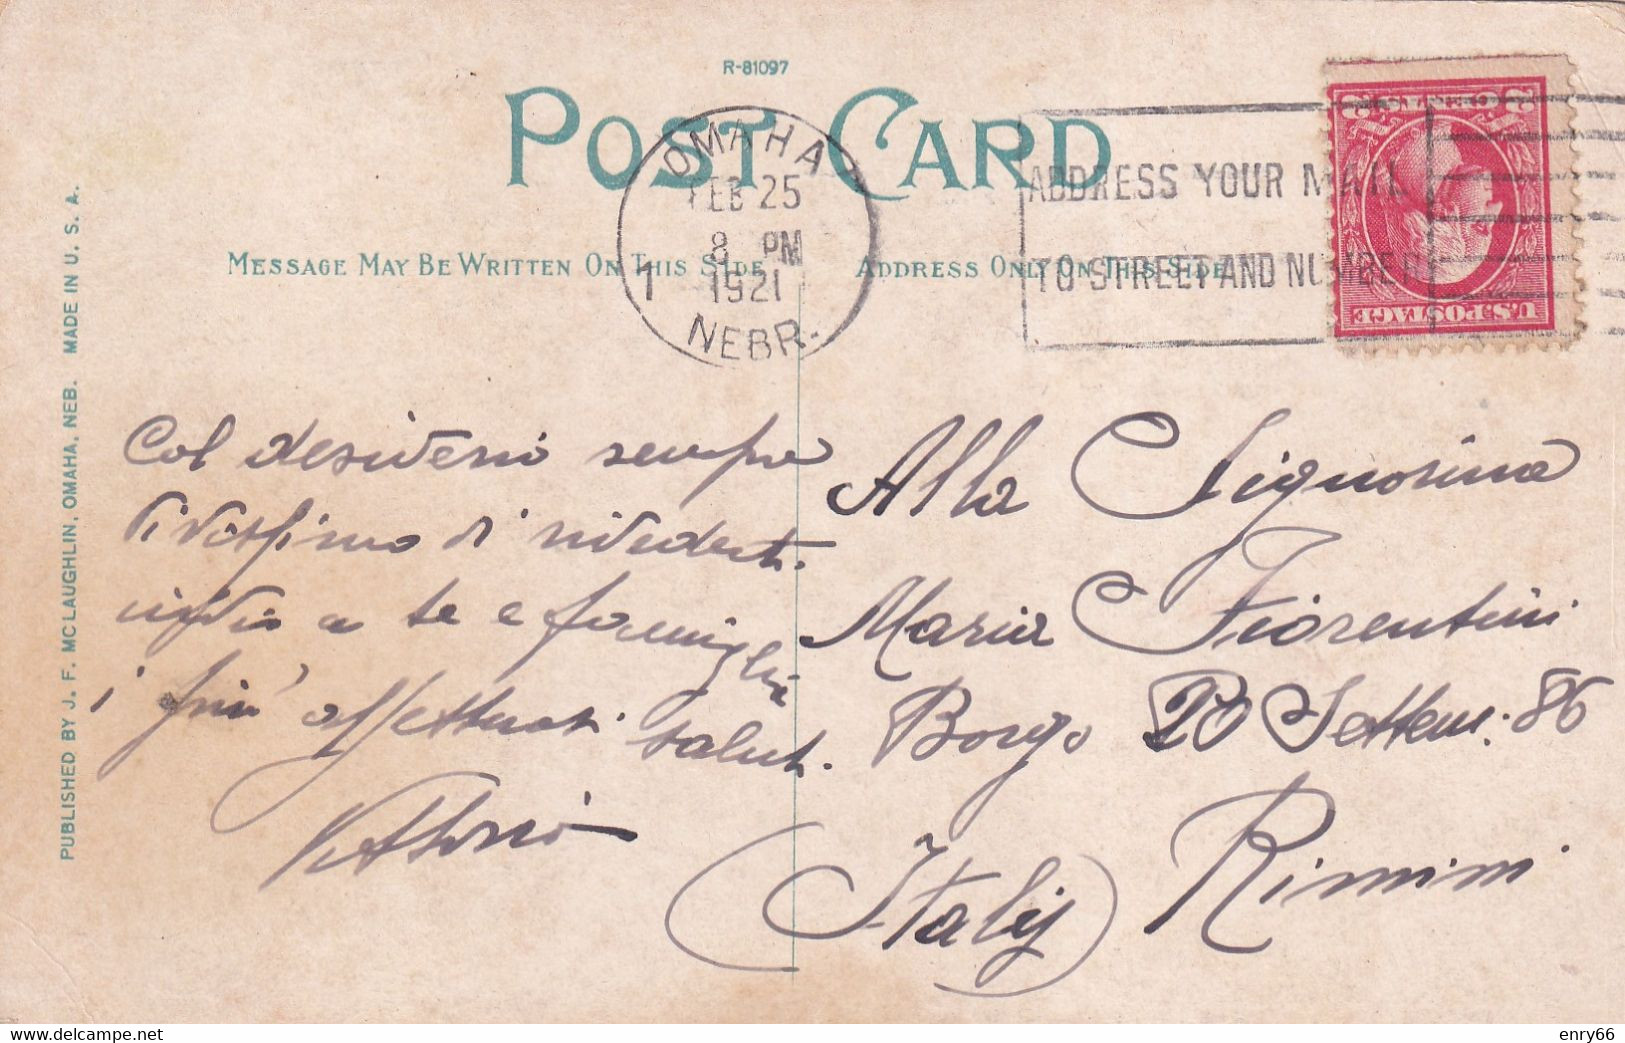 R-81097
POST CARD
OMAHA
FEB 25
8 PM
1 1921
NEBR.
ADDRESS YOUR MAIL
TO STREET AND NUMBER
2 CENTS 2
U.S. POSTAGE
MESSAGE MAY BE WRITTEN ON THIS SIDE
ADDRESS ONLY ON THIS SIDE
PUBLISHED BY J. F. MC LAUGHLIN, OMAHA, NEB. MADE IN U. S. A.
Col desiderio sempre
vivissimo di rivederti.
invio a te e famiglia
i più affettuosi saluti.
Vittorio
Alla Signorina
Maria Fiorentini
Borgo 20 Settem: 86
Rimini
(Italy)
enry66